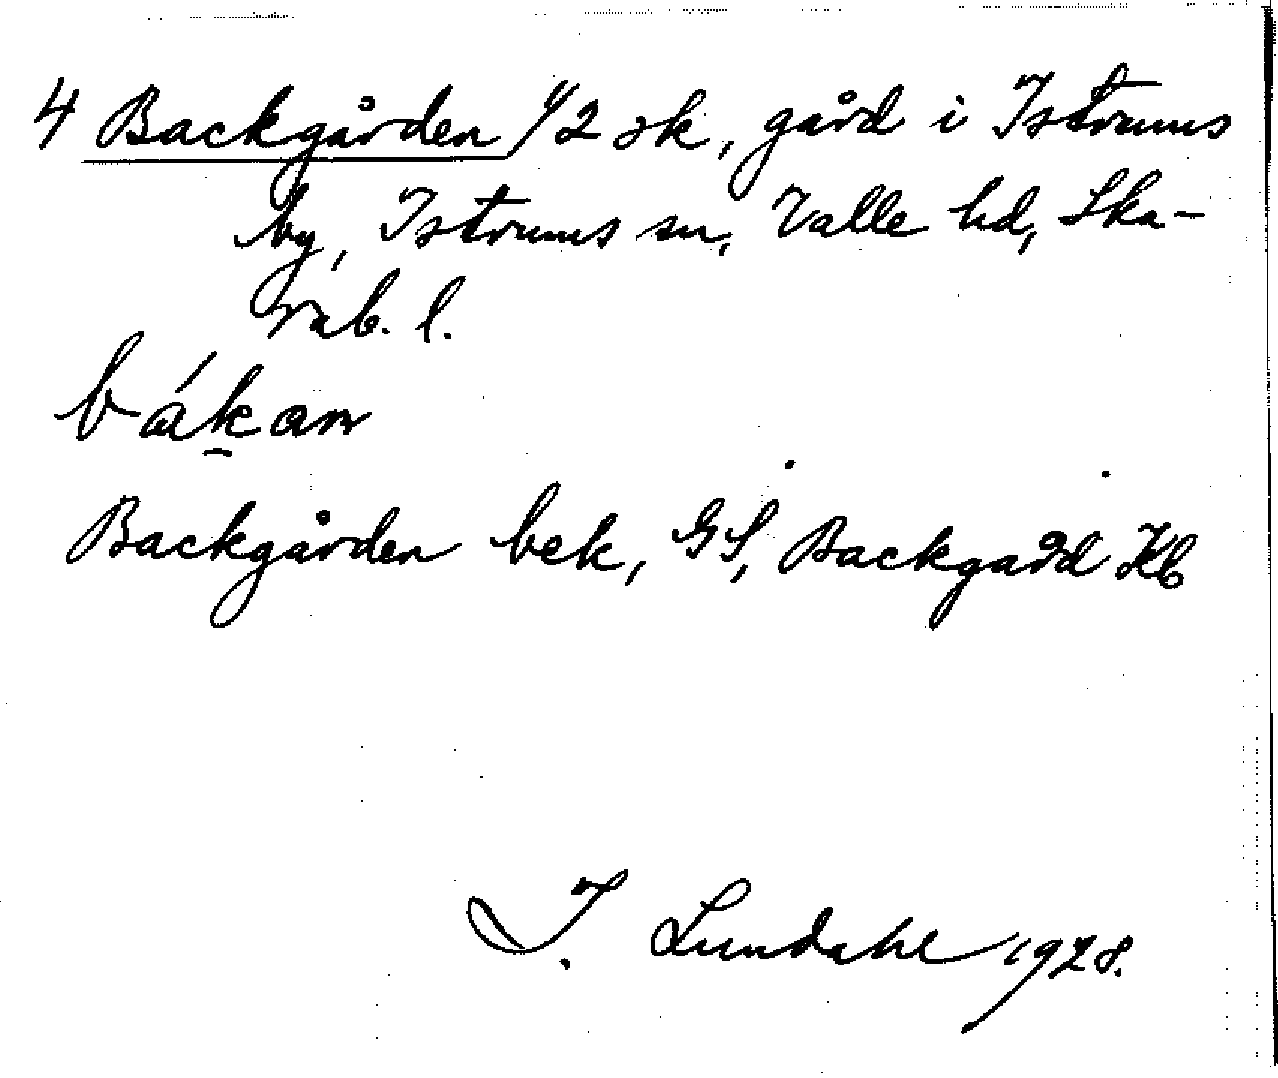 4 Backgården 1/2 sk, gård i Istrums
by, Istrums sn, Valle hd, Ska-
rab. l.
bák̠an
Backgården bek, GS, Backgård Kb
I. Lundahl 1928.